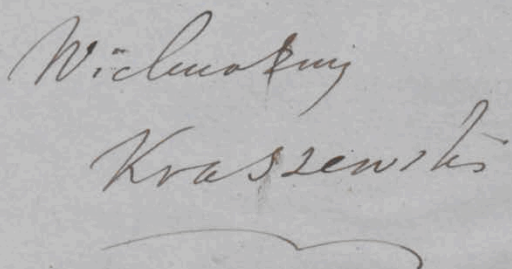 Wielmożny
Kraszewski